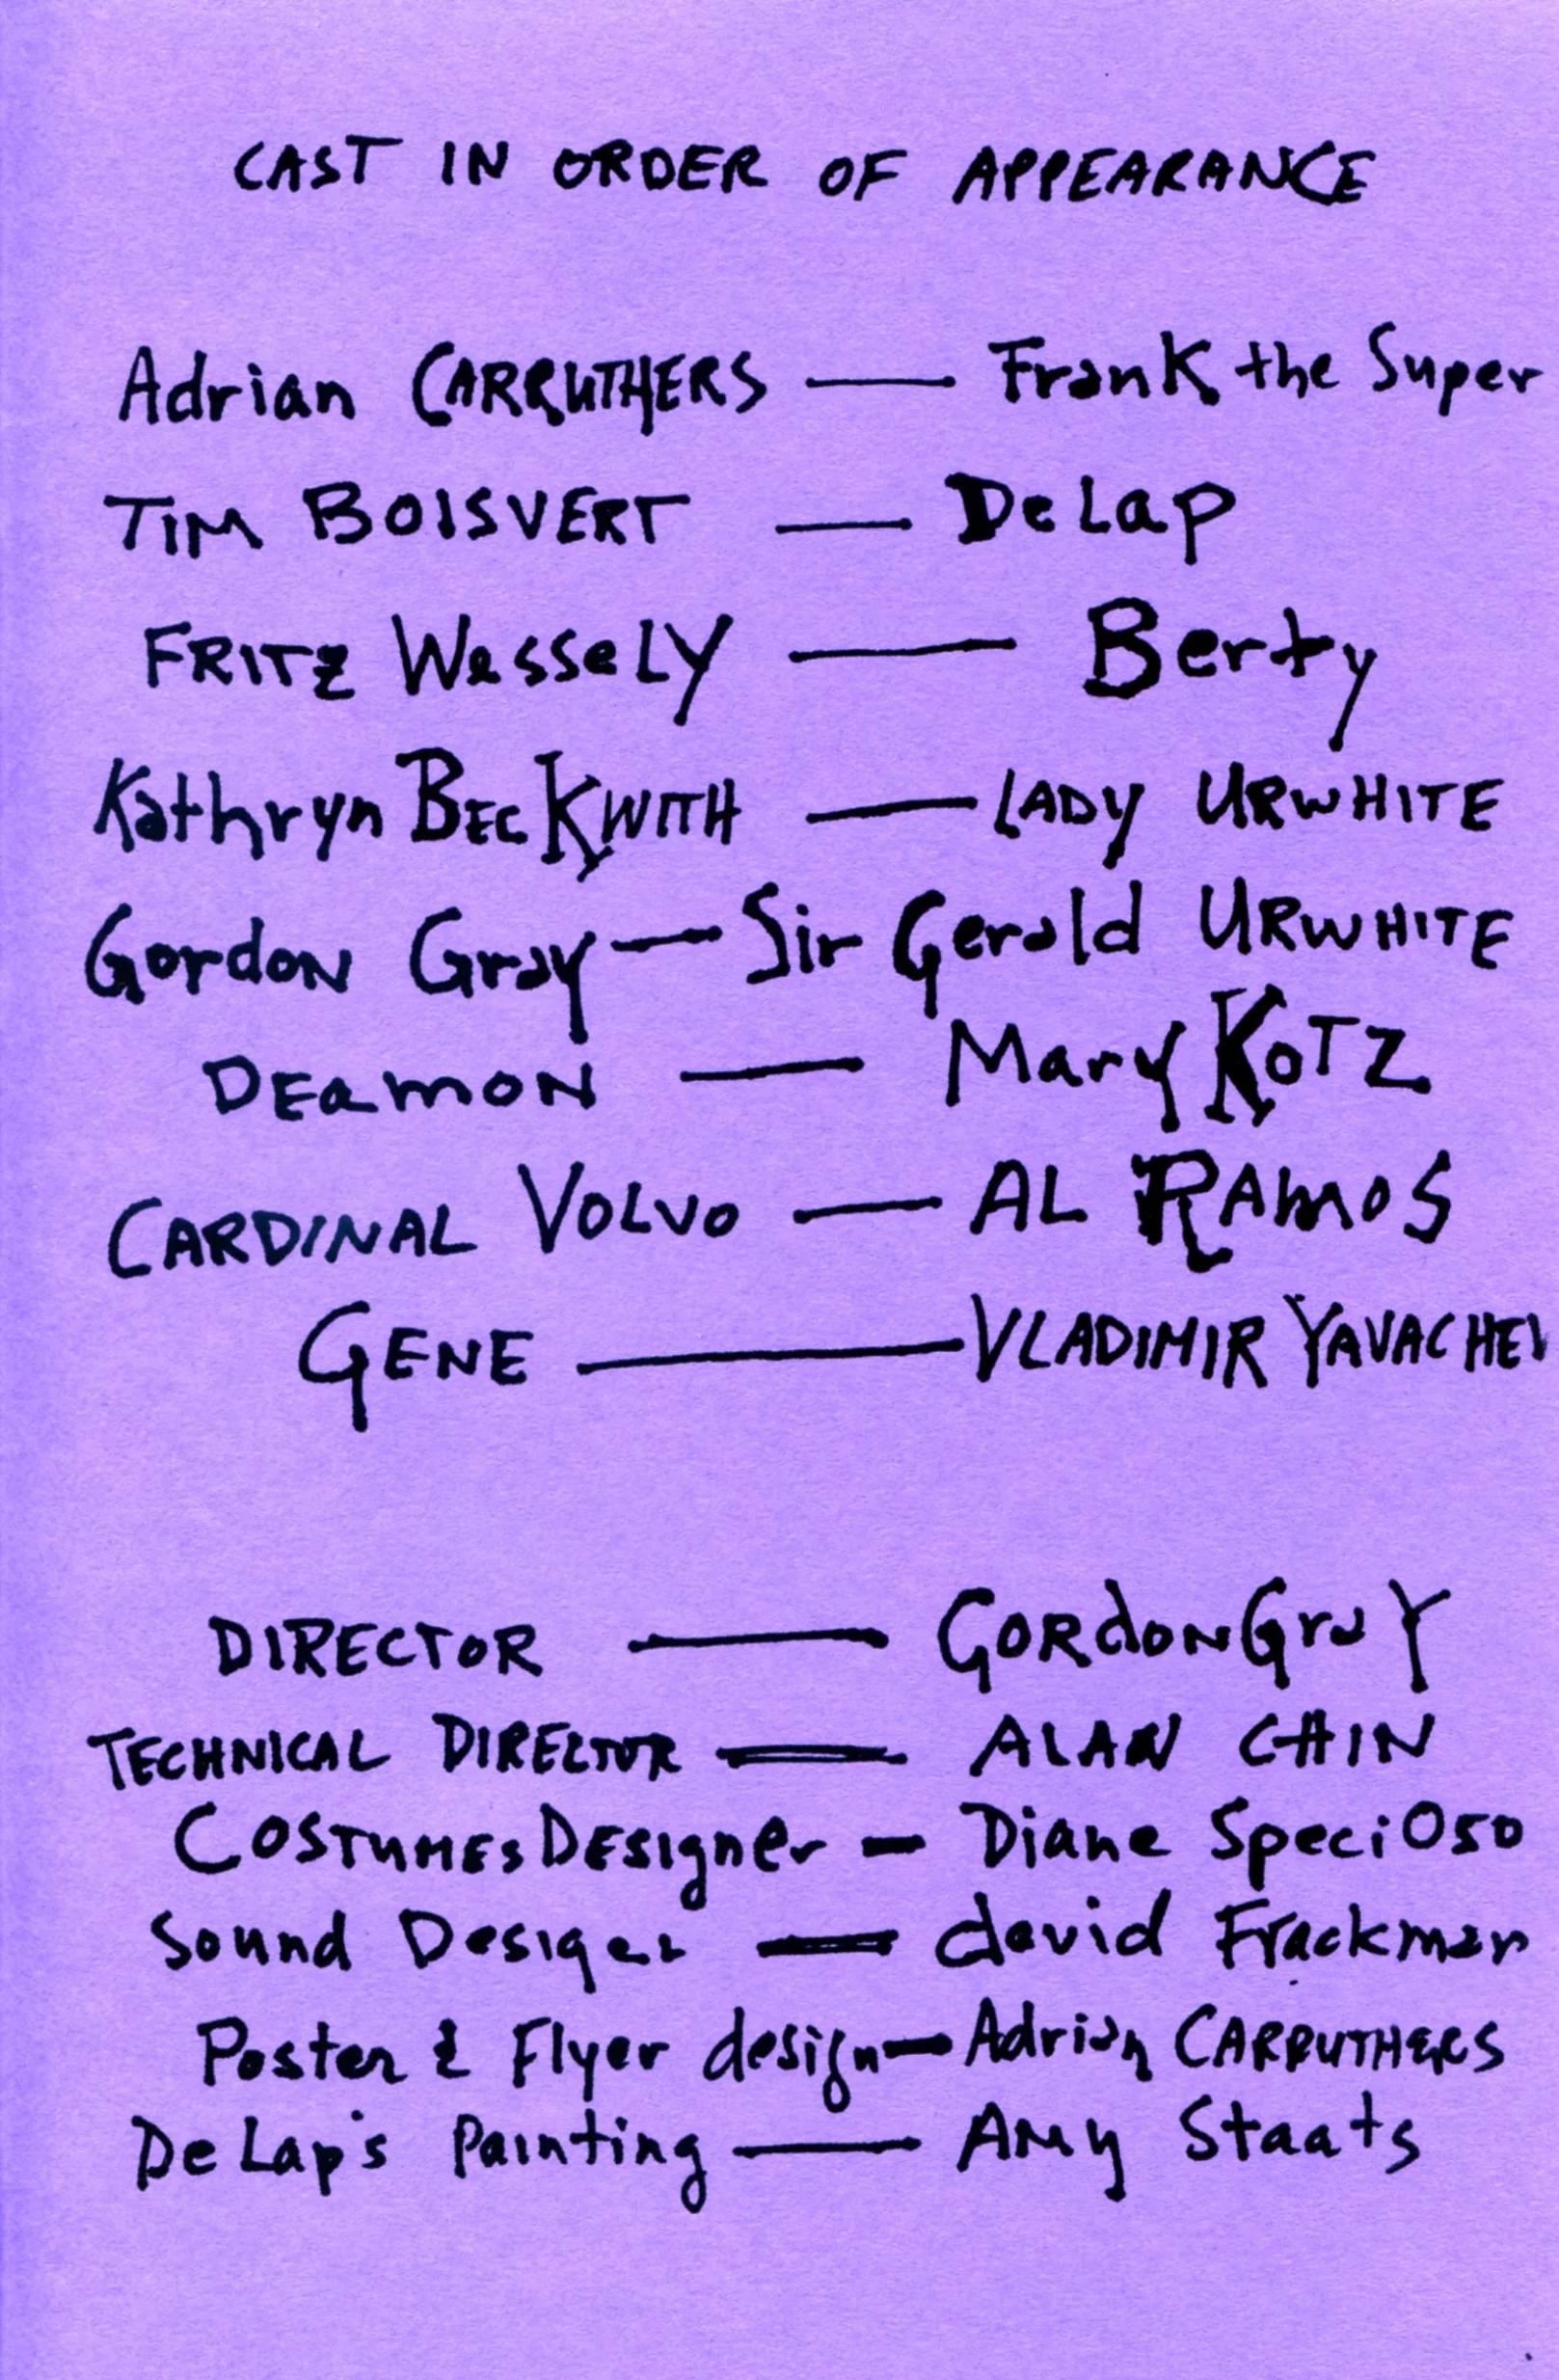 CAST IN ORDER OF APPEARANCE
Adrian CARRUTHERS — Frank the Super
TIM BOISVERT — DeLap
FRITZ WesseLY — Berty
Kathryn BECKWITH — LADY URWHITE
Gordon Gray — Sir Gerald URWHITE
DEamON — Mary KOTZ
CARDINAL VOLVO — AL RAMOS
GENE — VLADIMIR YAVACHEV
DIRECTOR — GORdON GraY
TECHNICAL DIRECTOR — ALAN CHIN
COSTUMES DESIgner — Diane SpeciOso
Sound Desiger — david Frackman
Poster & Flyer design — Adrian CARRUTHERS
DeLap's Painting — AMy Staats